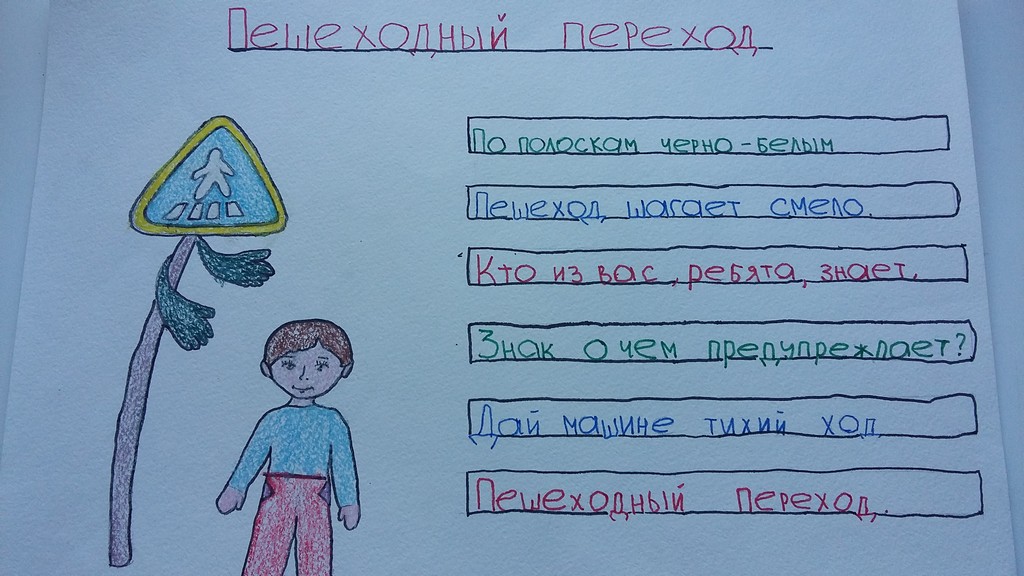 Пешеходный переход
По полоскам черно-белым
Пешеход шагает смело.
Кто из вас, ребята, знает,
Знак о чем предупреждает?
Дай машине тихий ход
Пешеходный переход.